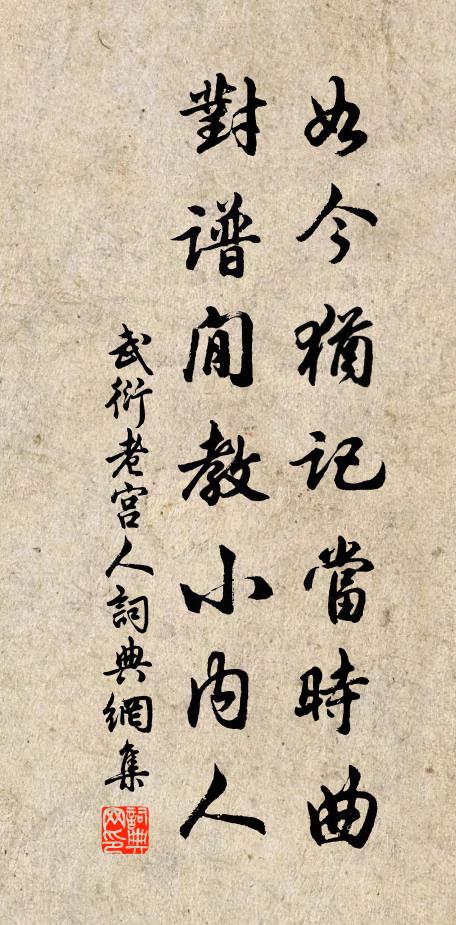 如今猶記當時曲
對谱閒教小内人
武衍老宫人詞典網集
詞典网印